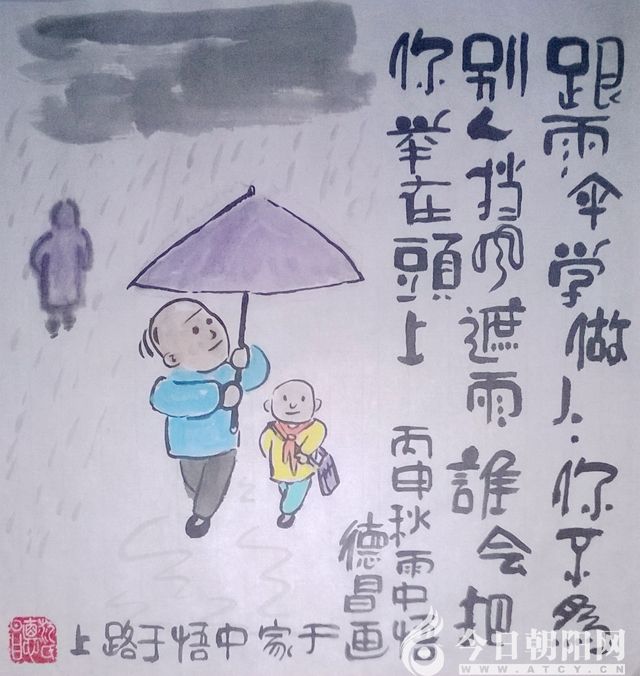 跟雨伞学做人.你不為
别人挡风遮雨誰会把
你举在頭上
丙申秋雨中悟
德昌画
于家中悟于路上
今日朝阳网
WWW.ATCY.CN